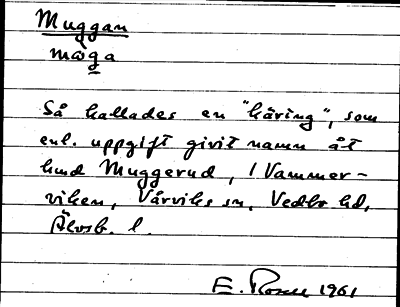 Muggan
måga
Så kallades en "käring", som
enl. uppgift givit namn åt
hmd Muggerud, i Vammer-
viken, Vårviks sn, Vedbo hd,
Älvsb. l.
E. Rosell 1961